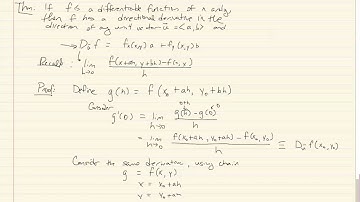 Thm: If f is a differentiable function of x and y,
then f has a directional derivative in the
direction of any unit vector u = <a, b> and
→ Dᵤ f = fₓ(x,y) a + f_y(x,y) b
Recall: lim h→0 f(x+ah, y+bh) - f(x, y) / h
Proof: Define g(h) = f(x₀ + ah, y₀ + bh)
Consider 0+h
g'(0) = lim h→0 g(h) - g(0) / h
= lim h→0 f(x₀+ah, y₀+ah) - f(x₀, y₀) / h ≡ Dᵤ f(x₀, y₀)
Consider the same derivative, using chain
g = f(x, y)
x = x₀ + ah
y = y₀ + ah